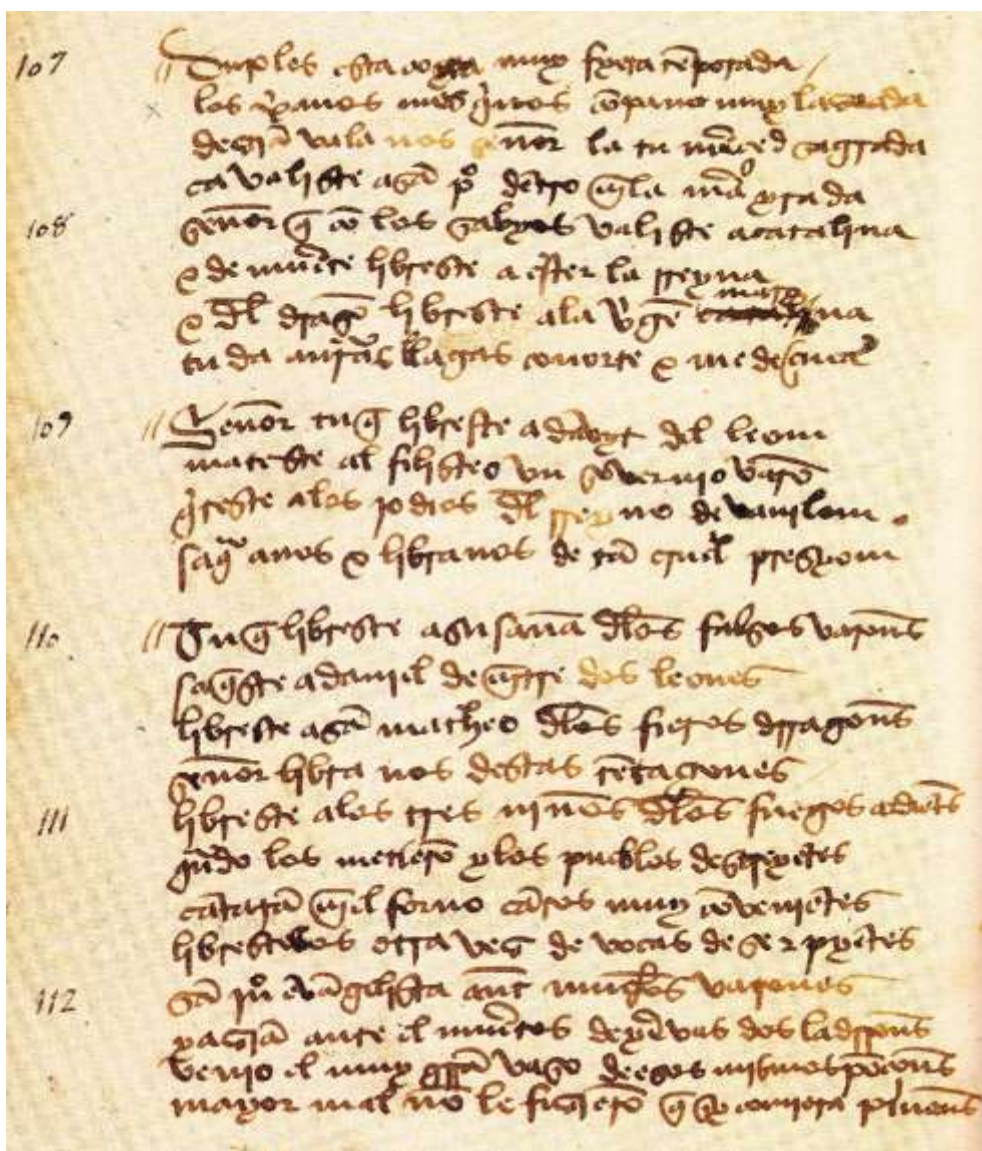 107 Duro les esta coyta muy fyera tẽporada
los xp̃anos mesq̃nos cõpanna muy lazrada
deziã vala nos sẽnor la tu mẽrced sagrada
ca valiste a sã pº dẽtro ẽla mã yrada
108 sẽnor q̃ cõ los sabyos valiste a catalina
e de muẽrte librẽste a ester la rreyna
e dl̃ dragõ libreste ala vyrgẽ marina
tu da a nr̃as llagas conorte e medeçina
109 Sẽnor tu q̃ libreste a dauyt del leom
mateste al filisteo vn sovervio varõ
q̃teste alos jodios dl̃ rreyno de vavilom
saq̃ a nos e libranos de tã cruel presyom
110 Tu q̃ libreste a susana dl̃os falsos varon̄s
saq̃ste a daniel de ẽtre dos leones
libreste a sã matheo dl̃os fieros dragon̄s
sẽnor libra nos destas tẽtaçiones
111 libreste alos tres niños dl̃os fuegos ardiẽts
q̃ndo los metierõ y los pueblos descreyẽtes
cãtarã ẽel forno cãtos muy cõveniẽtes
libresteos otra vez de vocas de serpyẽtes
112 sã juº evãgelista ante muchos varones
yaziã ante el muẽrtos de yervas dos ladron̄s
vevio el muy grrã vaso de esos mismos poçon̄s
mayor mal no le fizierõ q̃ sy comiera pinon̄s